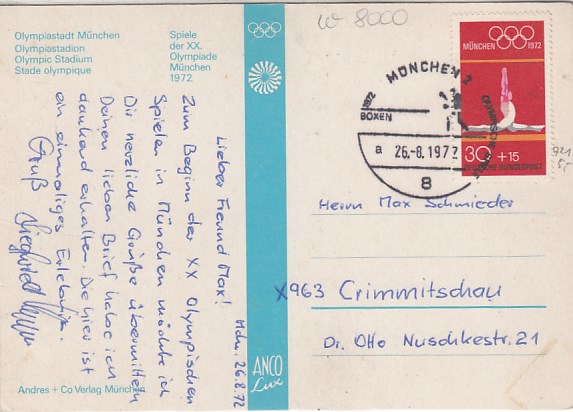 W 8000
Olympiastadt München
Olympiastadion
Olympic Stadium
Stade olympique
Spiele
der XX.
Olympiade
München
1972
Mchn. 26.8.72
Lieber Freund Max!
Zum Beginn der XX Olympischen
Spielen in München möchte ich
Dir herzliche Grüße übermitteln
Deinen lieben Brief habe ich
dankend erhalten. Die hier ist
ein einmaliges Erlebnis.
Gruß
Siegfried
ANCO
Lux
Andres + Co Verlag München
MÜNCHEN 2
1972
BOXEN
OLYMPISCHE SPIELE
a 26.-8.1972
8
MÜNCHEN 1972
30 +15
DEUTSCHE BUNDESPOST
Herrn Max Schmieder
X963 Crimmitschau
Dr. Otto Nuschkestr. 21